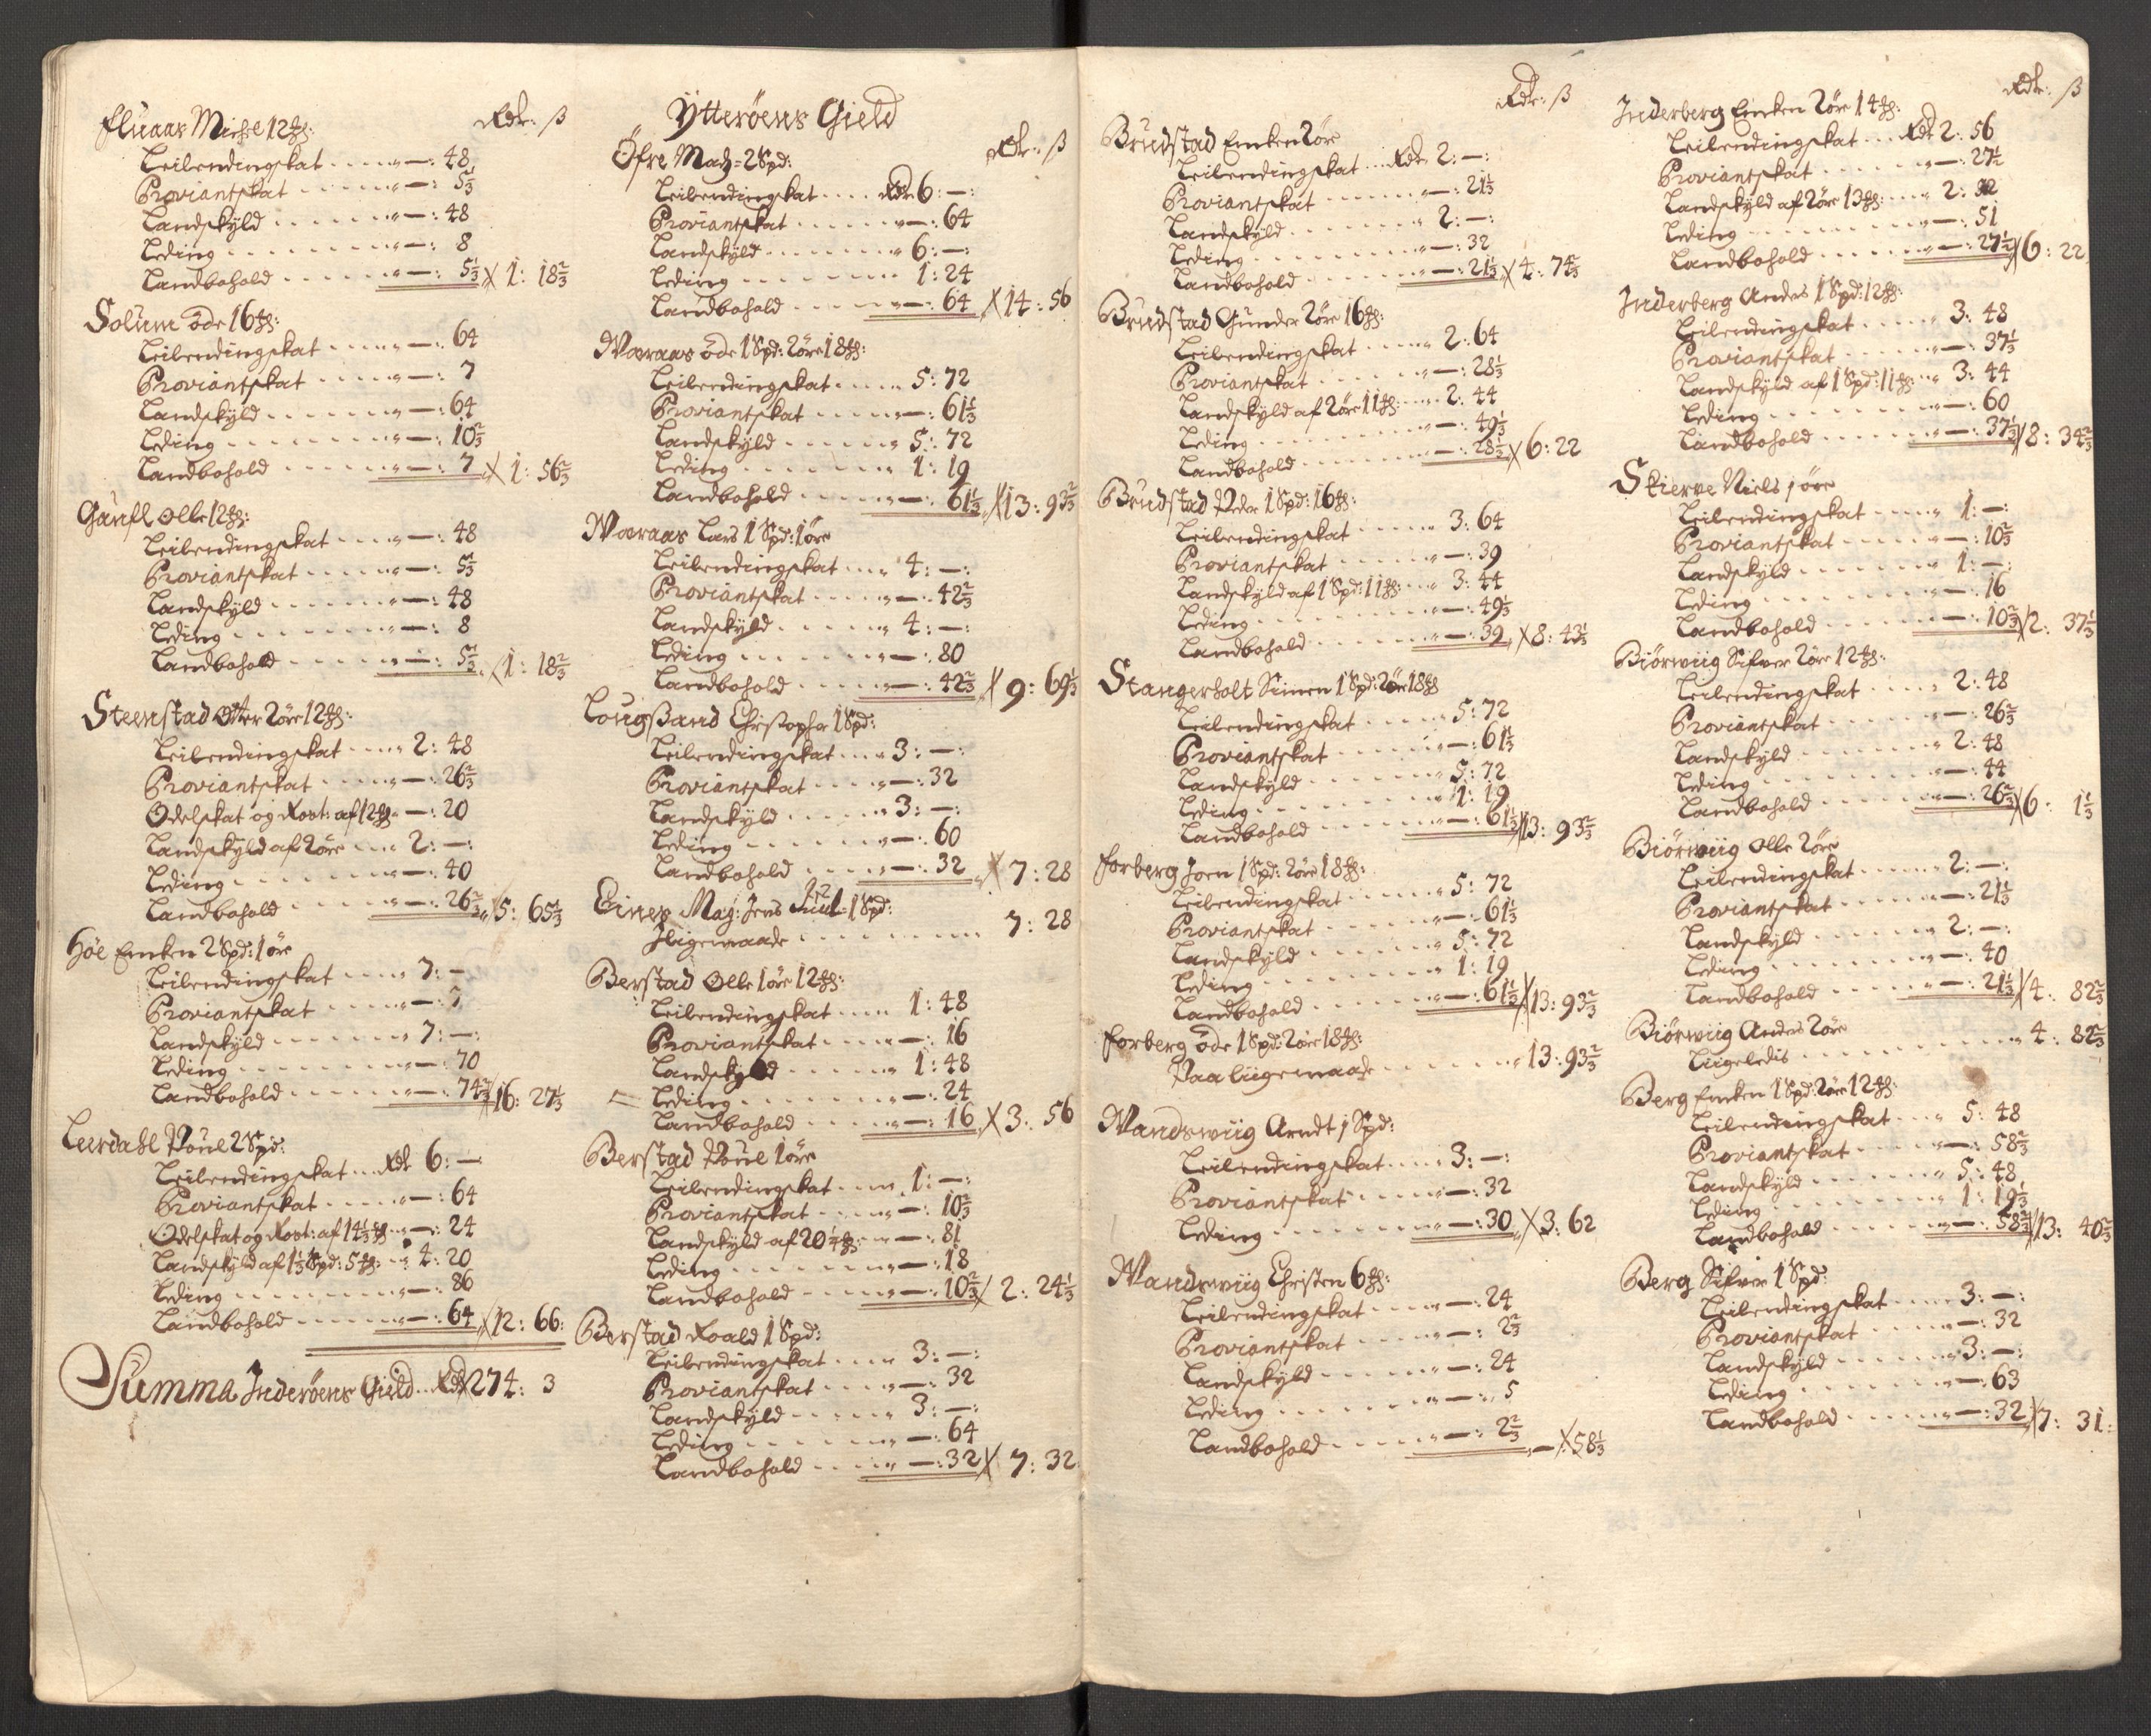 Rdr: ß
Fluaas Michel 12 ₥:
Leilendingskat - - - - " — : 48
Proviantskat - - - - " — : 5⅓
Landskyld - - - - " — : 48
Leding - - - - " — : 8
Landbohold - - - - " — : 5⅓ X 1: 18⅔
Solum öde 16 ₥:
Leilendingskat - - - - " — : 64
Proviantskat - - - - " — : 7
Landskyld - - - - " — : 64
Leding - - - - " — : 10⅔
Landbohold - - - - " — : 7 X 1: 56⅔
Gaufl Olle 12 ₥:
Leilendingskat - - - - " — : 48
Proviantskat - - - - " — : 5⅓
Landskyld - - - - " — : 48
Leding - - - - " — : 8
Landbohold - - - - " — : 5⅓ X 1: 18⅔
Steenstad Otter 2 öre 12 ₥:
Leilendingskat - - - " 2: 48
Proviantskat - - - - " — : 26⅔
Odelskat og Rost: af 12 ₥ " — : 20
Landskyld af 2 öre - - " 2: — :
Leding - - - - " — : 40
Landbohold - - - - " — : 26⅔ X 5: 65⅓
Höe Enken 2 Spd: 1 öre
Leilendingskat - - - " 7: —
Proviantskat - - - - " — : 7
Landskyld - - - - " 7: — :
Leding - - - - " — : 70
Landbohold - - - - " — : 74⅔ X 16: 27⅓
Lurdahl Poul 2 Spd:
Leilendingskat - - Rdr 6: —
Proviantskat - - - - " — : 64
Odelskat og Rost: af 14⅓ ₥ " — : 24
Landskyld af 1⅓ Spd: 5 ₥: " 4: 20
Leding - - - - " — : 86
Landbohold - - - - " — : 64 X 12: 66:
Summa Inderöens Gield - - Rdr X 274: 3
Ytteröens Gield
Rdr: ß
Öfre Mad = 2 Spd:
Leilendingskat - - - Rdr 6: — :
Proviantskat - - - - " — : 64
Landskyld - - - - " 6: — :
Leding - - - - 1: 24
Landbohold - - - - " — : 64 X 14: 56
Waaraas öde 1 Spd: 2 öre 18 ₥:
Leilendingskat - - - " 5: 72
Proviantskat - - - - " — : 61⅓
Landskyld - - - - " 5: 72
Leding - - - - " 1: 19
Landbohold - - - - " — : 61⅓ X 13: 93⅔
Waaraas Lars 1 Spd: 1 öre
Leilendingskat - - - " 4: — :
Proviantskat - - - - " — : 42⅔
Landskyld - - - - " 4: — :
Leding - - - - " — : 80
Landbohold - - - - " — : 42⅔ X 9: 69⅓
Lougßand Christopher 1 Spd:
Leilendingskat - - - " 3: — :
Proviantskat - - - - " — : 32
Landskyld - - - - " 3: — :
Leding - - - - " — : 60
Landbohold - - - - " — : 32 X 7: 28
Einer Mag: Jens 1 Spd:
Jligemaade - - - - 7: 28
Berstad Olle 1 öre 12 ₥:
Leilendingskat - - - " 1: 48
Proviantskat - - - - " — : 16
Landskyld - - - - " 1: 48
Leding - - - - " — : 24
Landbohold - - - - " — : 16 X 3: 56
Berstad Poul 1 öre
Leilendingskat - - - " 1: — :
Proviantskat - - - - " — : 10⅔
Landskyld af 20¼ ₥: - " — : 81
Leding - - - - " — : 18
Landbohold - - - - " — : 10⅔ X 2: 24⅓
Berstad Roald 1 Spd:
Leilendingskat - - - " 3: — :
Proviantskat - - - - " — : 32
Landskyld - - - - " 3: — :
Leding - - - - " — : 64
Landbohold - - - - " — : 32 X 7: 32
Rdr: ß
Brudstad Enken 2 öre
Leilendingskat - - Rdr 2: — :
Proviantskat - - - - " — : 21⅓
Landskyld - - - - " 2: — :
Leding - - - - " — : 32
Landbohold - - - - " — : 21⅓ X 4: 74⅔
Brudstad Gunder 2 öre 16 ₥:
Leilendingskat - - - " 2: 64
Proviantskat - - - - " — : 28⅓
Landskyld af 2 öre 11 ₥: - " 2: 44
Leding - - - - " — : 49⅓
Landbohold - - - - " — : 28⅓ X 6: 22
Brudstad Peder 1 Spd: 16 ₥:
Leilendingskat - - - " 3: 64
Proviantskat - - - - " — : 39
Landskyld af 1 Spd: 11 ₥: - " 3: 44
Leding - - - - " — : 49⅓
Landbohold - - - - " — : 39 X 8: 43⅓
Stangerholt Simen 1 Spd: 2 öre 18 ₥
Leilendingskat - - - " 5: 72
Proviantskat - - - - " — : 61⅓
Landskyld - - - - " 5: 72
Leding - - - - " 1: 19
Landbohold - - - - " — : 61⅓ X 13: 93⅔
Forberg Joen 1 Spd: 2 öre 18 ₥:
Leilendingskat - - - " 5: 72
Proviantskat - - - - " — : 61⅓
Landskyld - - - - " 5: 72
Leding - - - - " 1: 19
Landbohold - - - - " — : 61⅓ X 13: 93⅔
Forberg öde 1 Spd: 2 öre 18 ₥:
Paa liigemaade - - - - " 13: 93⅔
Wandswiig Arndt 1 Spd:
Leilendingskat - - - " 3: — :
Proviantskat - - - - " — : 32
Leding - - - - " — : 30 X 3: 62
Wandswiig Christen 6 ₥:
Leilendingskat - - - " — : 24
Proviantskat - - - - " — : 2⅔
Landskyld - - - - " — : 24
Leding - - - - " — : 5
Landbohold - - - - " — : 2⅔ — X 58⅓
Rdr: ß
Inderberg Enken 2 öre 14 ₥:
Leilendingskat - - Rdr 2: 56
Proviantskat - - - - " — : 27½
Landskyld af 2 öre 13 ₥: - " 2: 52
Leding - - - - " — : 51
Landbohold - - - - " — : 27½ X 6: 22
Inderberg Anders 1 Spd: 12 ₥:
Leilendingskat - - - " 3: 48
Proviantskat - - - - " — : 37⅓
Landskyld af 1 Spd: 11 ₥: - " 3: 44
Leding - - - - " — : 60
Landbohold - - - - " — : 37⅓ X 8: 34⅔
Skierve Niels 1 öre
Leilendingskat - - - " 1: — :
Proviantskat - - - - " — : 10⅔
Landskyld - - - - " 1: — :
Leding - - - - " — : 16
Landbohold - - - - " — : 10⅔ X 2: 37⅓
Biörwiig Sifver 2 öre 12 ₥:
Leilendingskat - - - " 2: 48
Proviantskat - - - - " — : 26⅔
Landskyld - - - - " 2: 48
Leding - - - - " — : 44
Landbohold - - - - " — : 26⅔ X 6: 1⅓
Biörwiig Olle 2 öre
Leilendingskat - - - " 2: — :
Proviantskat - - - - " — : 21⅓
Landskyld - - - - " 2: — :
Leding - - - - " — : 40
Landbohold - - - - " — : 21⅓ X 4: 82⅔
Biörwiig Anders 2 öre
Liigeledis - - - - " 4: 82⅔
Berg Enken 1 Spd: 2 öre 12 ₥:
Leilendingskat - - - " 5: 48
Proviantskat - - - - " — : 58⅔
Landskyld - - - - " 5: 48
Leding - - - - " 1: 19⅓
Landbohold - - - - " — : 58⅔ X 13: 40⅔
Berg Sifver 1 Spd:
Leilendingskat - - - " 3: — :
Proviantskat - - - - " — : 32
Landskyld - - - - " 3: — :
Leding - - - - " — : 63
Landbohold - - - - " — : 32 X 7: 31: